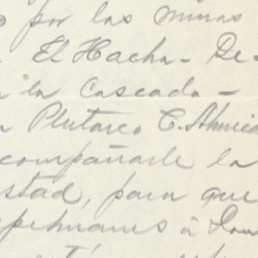 por las minas
El Hacha - De-
la Cascada -
Plutarco C. Ahu
compañarle la
stad, para que